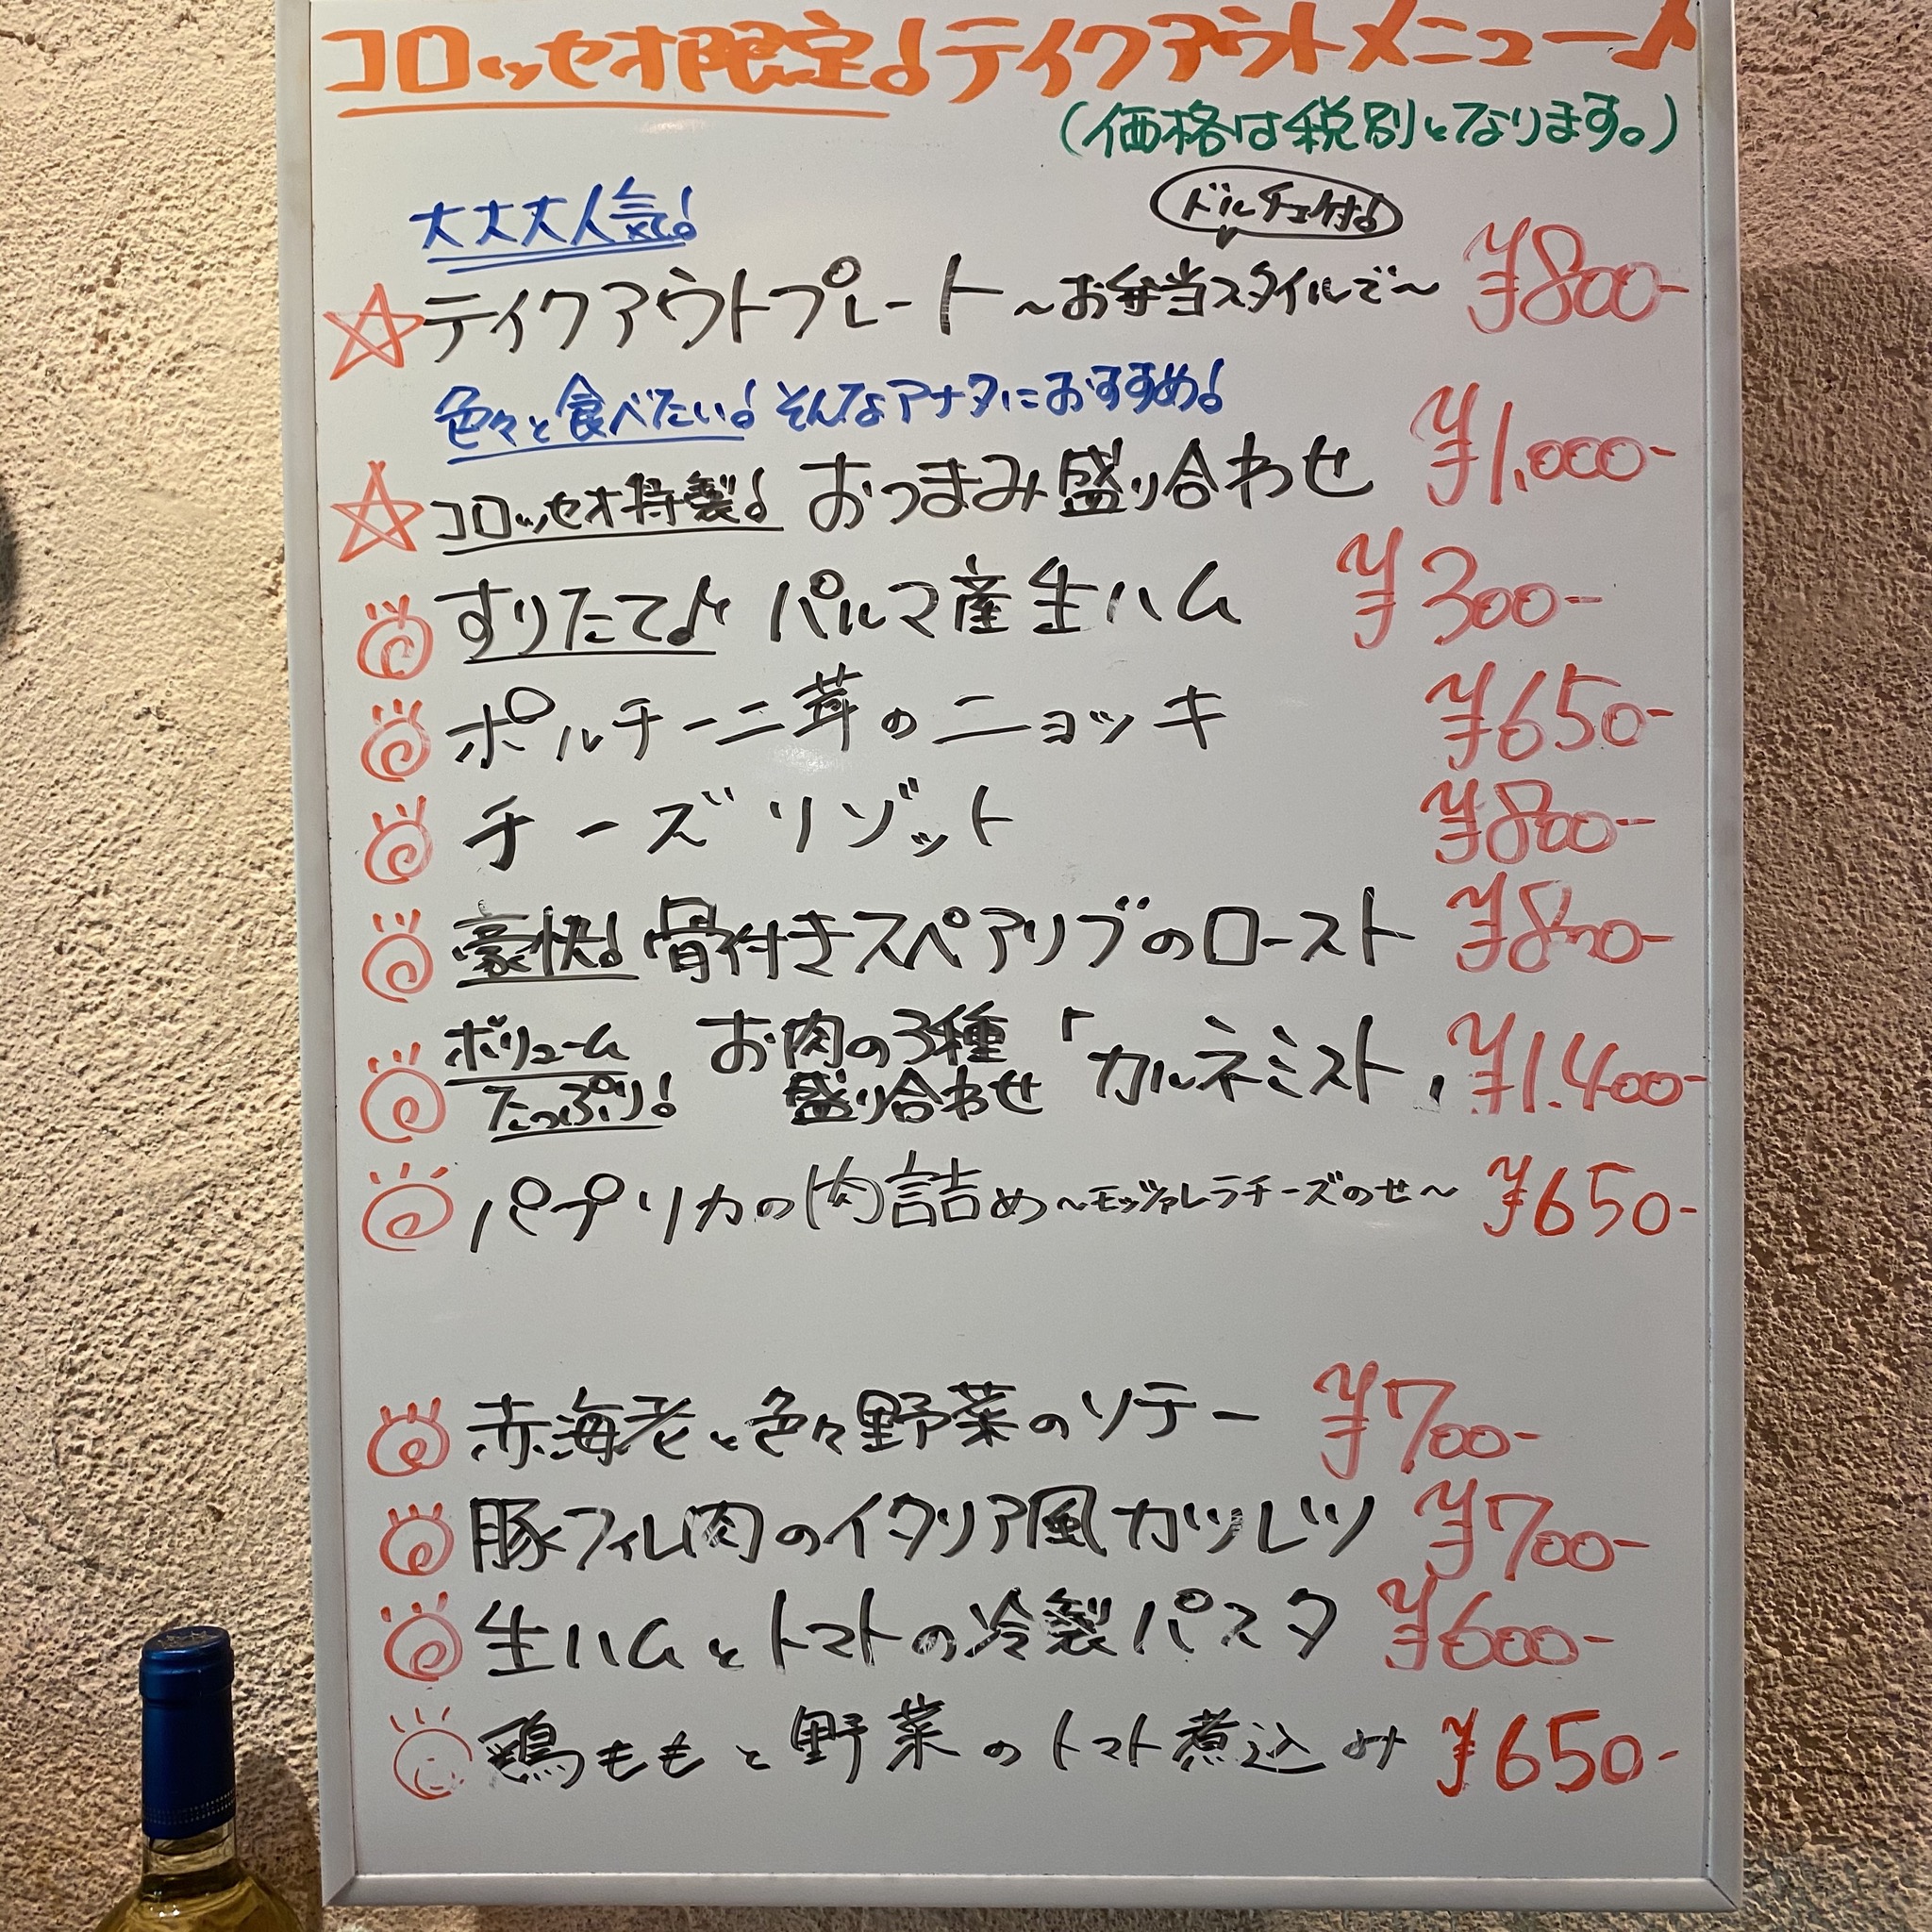 コロッセオ限定!テイクアウトメニュー♪
(価格は税別となります。)
大大大人気!
ドルチェ付!
☆テイクアウトプレート~お弁当スタイルで~ ¥800-
色々と食べたい!そんなアナタにおすすめ!
☆コロッセオ特製!おつまみ盛り合わせ ¥1,000-
すりたて♪ パルマ産生ハム ¥300-
ポルチーニ茸のニョッキ ¥650-
チーズリゾット ¥800-
豪快!骨付きスペアリブのロースト ¥800-
ボリューム たっぷり! お肉の3種 盛り合わせ「カルネミスト」 ¥1.400-
パプリカの肉詰め~モッツァレラチーズのせ~ ¥650-
赤海老と色々野菜のソテー ¥700-
豚フィレ肉のイタリア風カツレツ ¥700-
生ハムとトマトの冷製パスタ ¥600-
鶏ももと野菜のトマト煮込み ¥650-